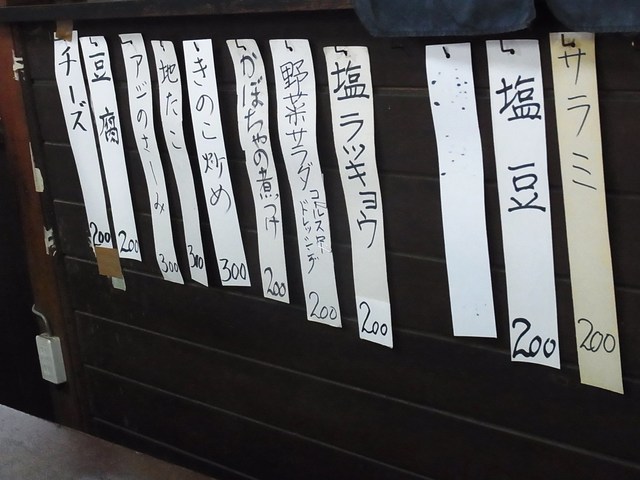 サラミ 200
塩豆 200
塩ラッキョウ 200
野菜サラダ コールスロードレッシング 200
かぼちゃの煮つけ 200
きのこ炒め 300
地たこ 300
アジのさしみ 300
豆腐 200
チーズ 200